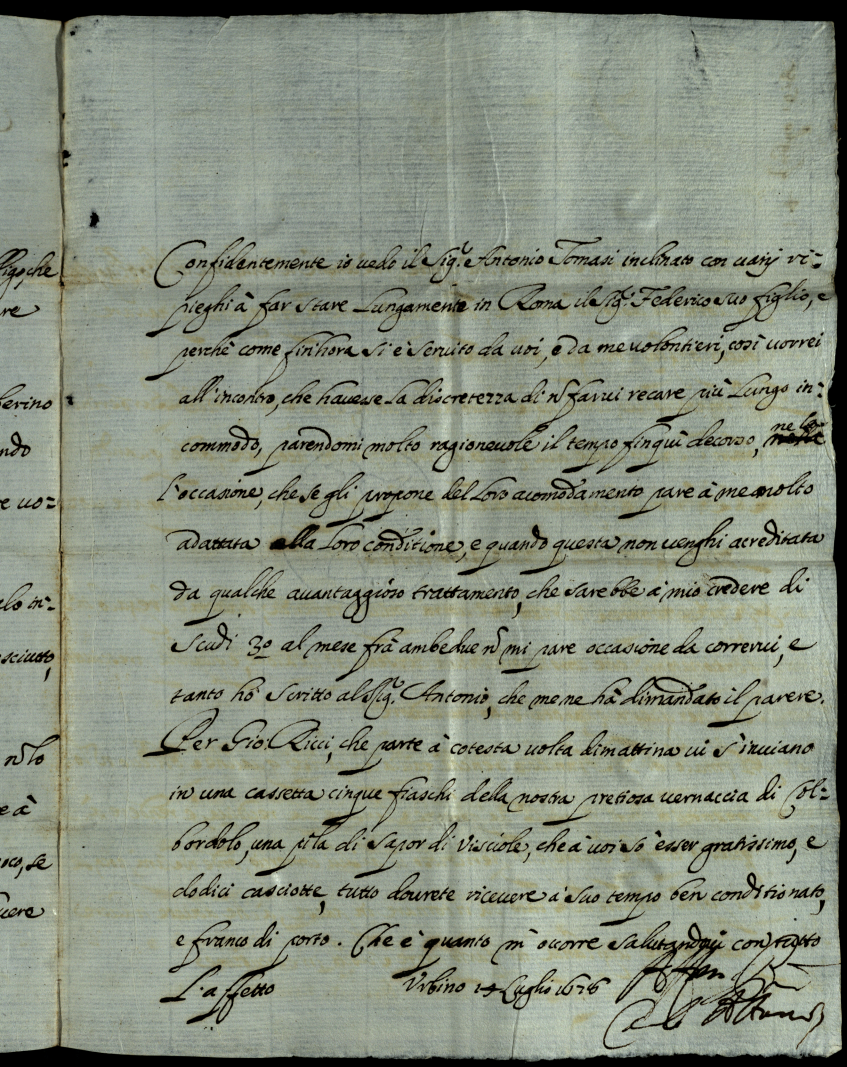 ffigo, che
re
berino
ndo
e uo=
alo in=
osciutto,
n̄ lo
e à
oco, se
uere
Confidentemente io uedo il Sig.r Antonio Tomasi inclinato con uarij ri=
pieghi à far stare Lungamente in Roma il Sig.r Federico suo figlio, e
perche come finhora si è seruito da uoi, e da me uolontieri, così uorrei
all'incontro, che hauesse La discretezza di n̄ farui recare più Lungo in=
commodo, parendomi molto ragioneuole il tempo finqui decorso, ne
L'occasione, che se gli propone del Loro acomodamento pare à me molto
adattata alla Loro conditione, e quando questa non uenghi acreditata
da qualche auantaggioso trattamento, che sarebbe à mio credere di
scudi 30 al mese frà ambedue n̄ mi pare occasione da correrui, e
tanto hò scritto al Sig.r Antonio, che me ne hà dimandato il parere.
Per Gio: Ricci, che parte à cotesta uolta dimattina ui s'inuiano
in una cassetta cinque fiaschi della nostra pretiosa uernaccia di Col=
bordolo, una pila di sapor di Visciole, che à uoi sò esser gratissimo, e
dodici casciotte, tutto dourete riceuere à suo tempo ben conditionato,
e franco di porto. Che è quanto m'occorre salutandoui con tutto
L'affetto Vrbino 14 Luglio 1676